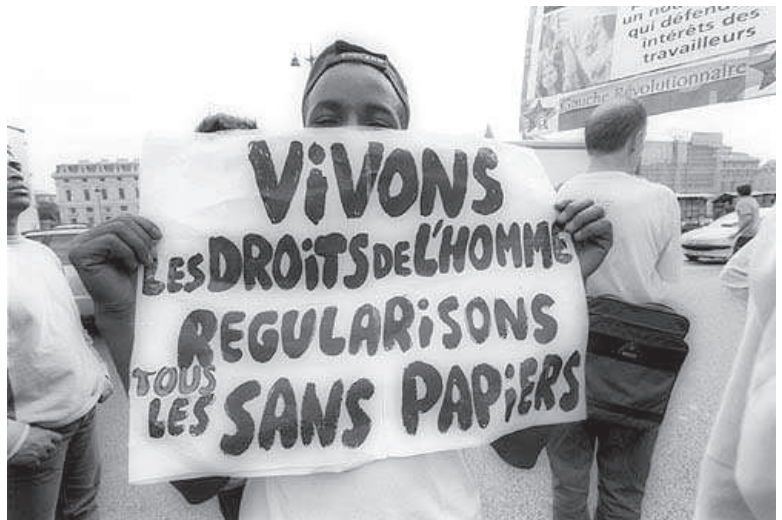 un nou
qui défend
intérêts des
travailleurs
Gauche Révolutionnaire
ViVONS
LES DROiTS DE L'HOMME
REGULARiSONS
TOUS
LES SANS PAPiERS